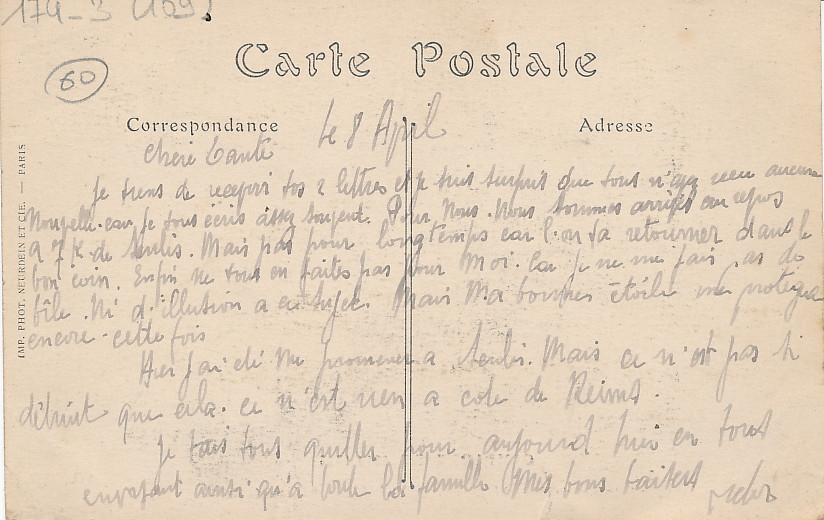 174-3 (109)
60
Carte Postale
Correspondance
Adresse
IMP. PHOT. NEURDEIN ET CIE. — PARIS
Le 8 April
Chère Tante
Je viens de recevoir vos 2 lettres et je suis surpris que vous n'ayez reçu aucune
Nouvelle car je vous écris assez souvent. Pour Nous. Nous sommes arrivés au repos
a 7 K de Senlis. Mais pas pour longtemps car l'on va retourner dans le
bon coin. Enfin ne vous en faites pas pour Moi. Car je ne me fais pas de
bile. Ni d'illusion a ce sujet. Mais Ma bonnes étoile me protègera
encore cette fois
Hier j'ai été me promener a Senlis. Mais ce n'est pas si
détruit que cela. ce n'est rien a cote de Reims.
Je vais vous quitter pour aujourd hui en vous
envoyant ainsi qu'a toute la famille Mes bons baisers